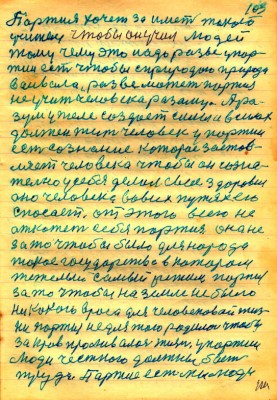 Партия хочет за имет такого
учителя чтобы он учил людей
тому чему это надо разве у пар
тии ест чтобы с природою природа
разве может партия
не учит человека разому. А ра
зум у теле создает силы а в силах
должен жит человек у партии
ест сознание которая застов
ляет человека чтобы он созна
телно у себя делал свое здоровия
оно человека во всех путях его
спосает. от этого всего не
откажет себя партия она не
за то чтобы было для народа
такое государство в котором
жители самый партии
за то чтобы на земле не было
никакого для человековай жиз
ни партия не для того родилас чтобы
за кров проливалас жизн. у партии
люди честного должны быт
труда Партия ест мы люди